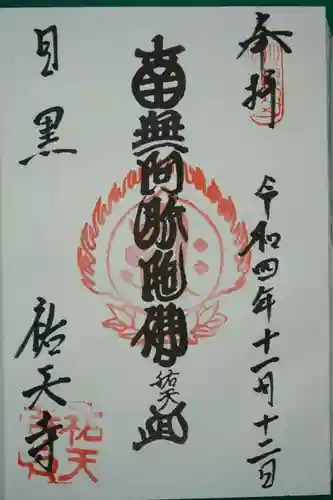 奉拝
令和四年十一月十二日
南無阿弥陀佛
祐天
目黒
祐天寺
祐天